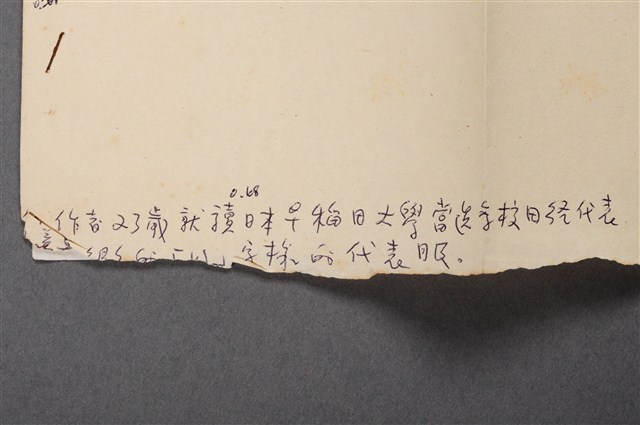 0.68
作者23歲就讀日本早稻田大學當選學校田徑代表
字樣的代表服。